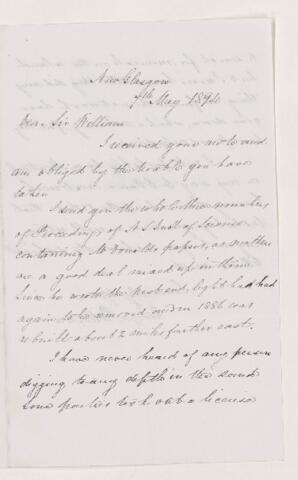 New Glasgow
7th May 1894
Dear Sir William
I received your note and
am obliged by the trouble you have
taken
I send you the whole three numbers
of Proceedings of N S Inst of Science
containing McDonalds papers, as matters
are a good deal mixed up in them
Since he wrote the east end light had had
again to be removed and in 1886 was
rebuilt about 2 miles further east.
I have never heard of any person
digging to any depth in the sand
some parties took out a license